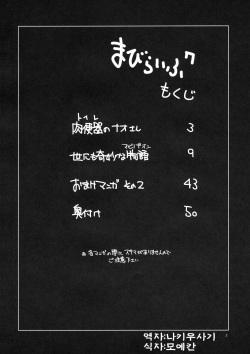 まびらいふ7
もくじ
トイレ
肉便器のナオエル 3
マビノギオン
世にも奇妙な物語 9
おまけマンガ その2 43
奥付け 50
역자:나키우사기
식자:모예칸